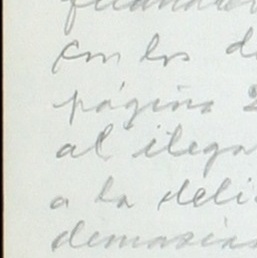 con los d
página 2
al ilega
a la deli
demasias